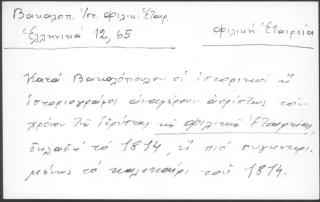 Βακαλοπ. Ἱστ. Φιλικ. Ἑταιρ.
Ἑλληνικά 12, 65
Φιλική Ἑταιρεία
Κατά Βακαλόπουλον οἱ ἱστορικοί κ
ἱστοριογράφοι ἀναφέρουν ἀορίστως τόν
χρόνον τῆς ἱδρύσεως τῆς Φιλικῆς Ἑταιρείας,
δηλαδή τό 1814, κ πιό συγκεκρι-
μένως τό καλοκαίρι τοῦ 1814.